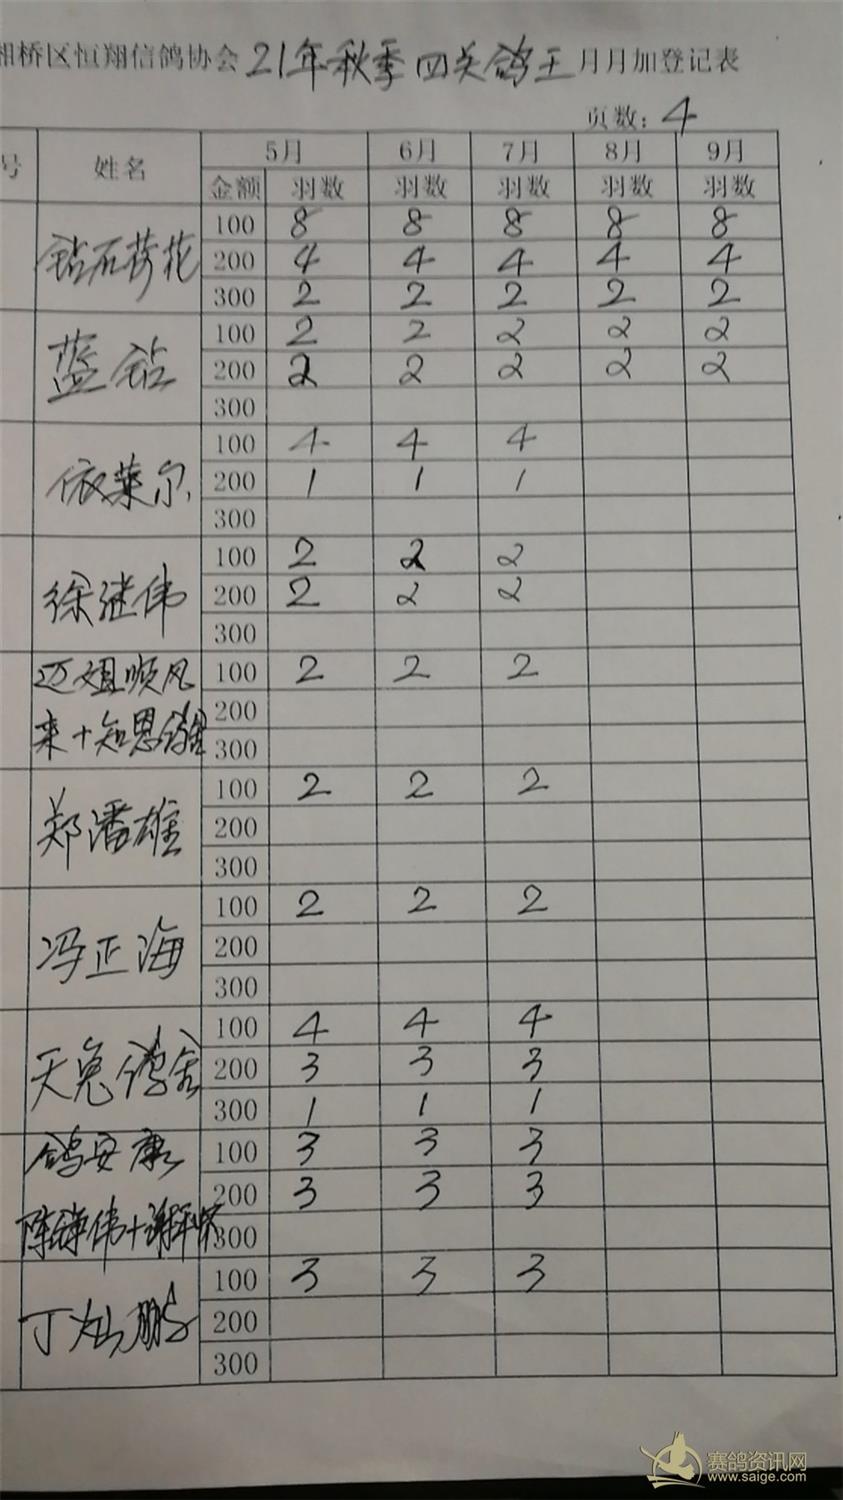 湘桥区恒翔信鸽协会21年秋季四关鸽王月月加登记表
页数：4
号 姓名 5月 6月 7月 8月 9月
金额 羽数 羽数 羽数 羽数 羽数
钻石荷花 100 8 8 8 8 8
200 4 4 4 4 4
300 2 2 2 2 2
蓝钻 100 2 2 2 2 2
200 2 2 2 2 2
300
依莱尔 100 4 4 4
200 1 1 1
300
徐继伟 100 2 2 2
200 2 2 2
300
迈姐顺风 100 2 2 2
来+知恩鸽舍 200
300
郑潘雄 100 2 2 2
200
300
冯正海 100 2 2 2
200
300
天兔鸽舍 100 4 4 4
200 3 3 3
300 1 1 1
鸽安康 100 3 3 3
200 3 3 3
陈 伟+谢 300
丁灿鹏 100 3 3 3
200
300
赛鸽资讯网
www.saige.com